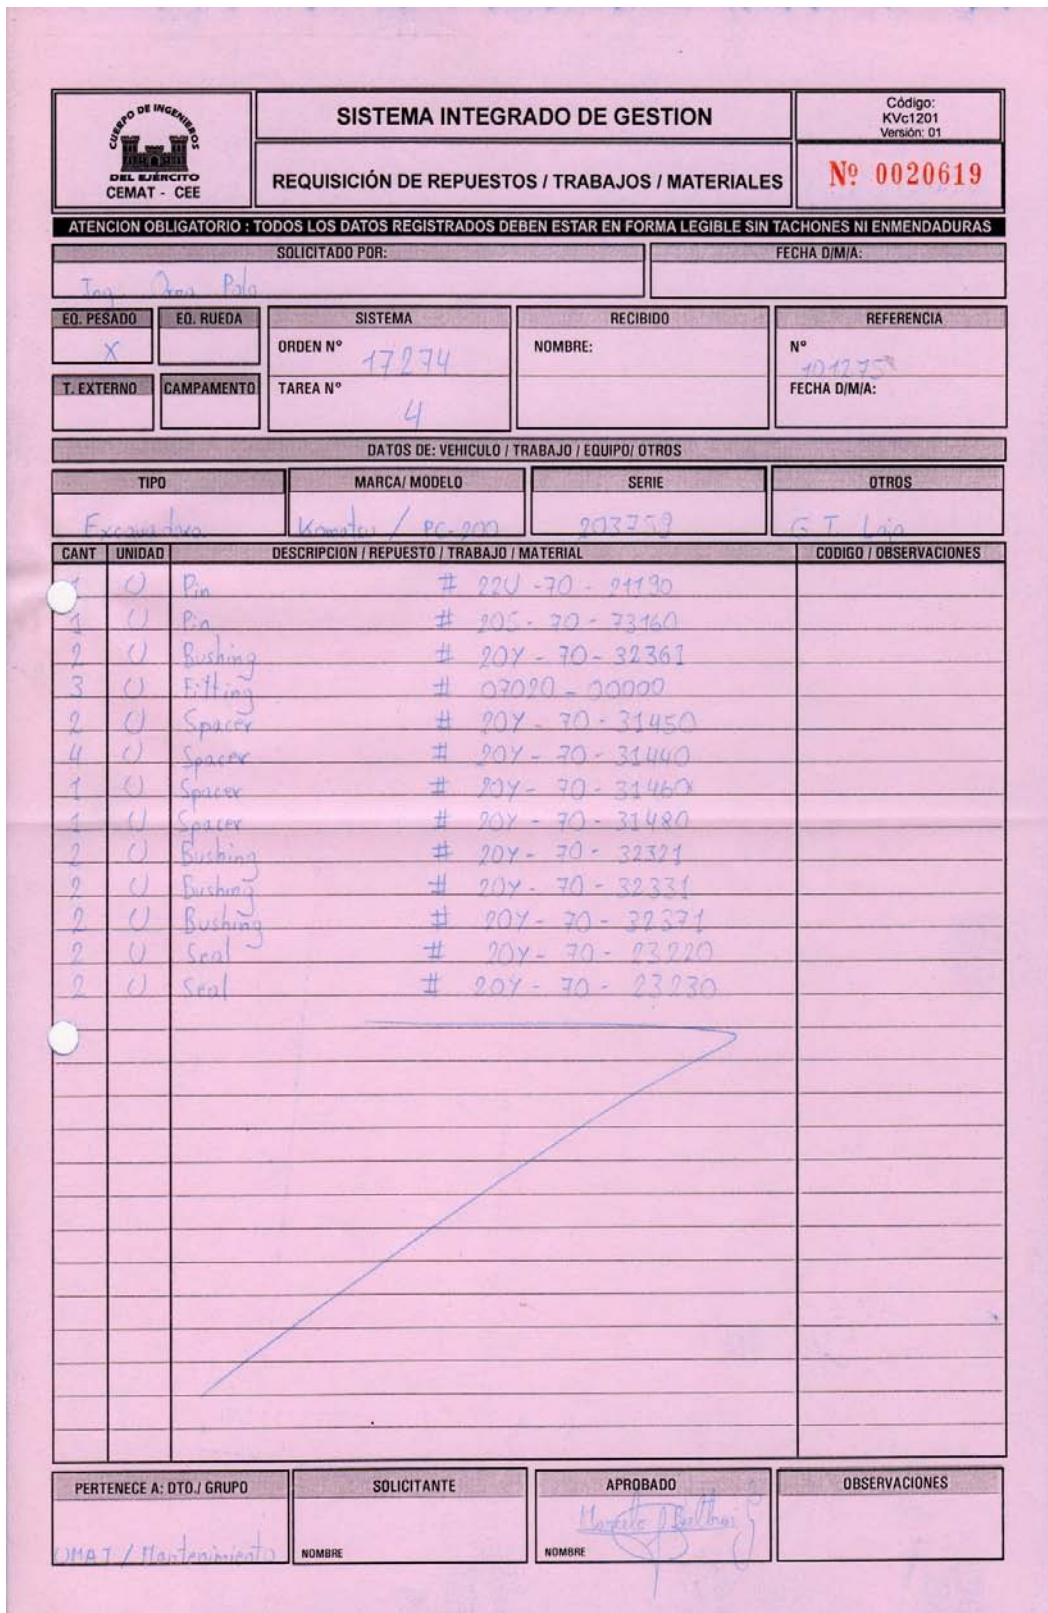 CUERPO DE INGENIEROS
DEL EJÉRCITO
CEMAT - CEE
SISTEMA INTEGRADO DE GESTION
REQUISICIÓN DE REPUESTOS / TRABAJOS / MATERIALES
Código:
KVc1201
Versión: 01
Nº 0020619
ATENCION OBLIGATORIO : TODOS LOS DATOS REGISTRADOS DEBEN ESTAR EN FORMA LEGIBLE SIN TACHONES NI ENMENDADURAS
SOLICITADO POR: FECHA D/M/A:
Ing.
EQ. PESADO EQ. RUEDA SISTEMA RECIBIDO REFERENCIA
X ORDEN Nº 17274 NOMBRE: Nº 101275
T. EXTERNO CAMPAMENTO TAREA Nº 4 FECHA D/M/A:
DATOS DE: VEHICULO / TRABAJO / EQUIPO/ OTROS
TIPO MARCA/ MODELO SERIE OTROS
Excavadora Komatsu / PC-200 203759 G T Loja
CANT UNIDAD DESCRIPCION / REPUESTO / TRABAJO / MATERIAL CODIGO / OBSERVACIONES
1 U Pin # 22U-70-21190
1 U Pin # 205-70-73160
2 U Bushing # 20Y-70-32361
3 U Fitting # 07020-00000
2 U Spacer # 20Y-70-31450
4 U Spacer # 20Y-70-31440
1 U Spacer # 20Y-70-31460
1 U Spacer # 20Y-70-31480
2 U Bushing # 20Y-70-32321
2 U Bushing # 20Y-70-32331
2 U Bushing # 20Y-70-32371
2 U Seal # 20Y-70-23220
2 U Seal # 20Y-70-23230
PERTENECE A: DTO./ GRUPO SOLICITANTE APROBADO OBSERVACIONES
Marcelo
/ Mantenimiento NOMBRE NOMBRE